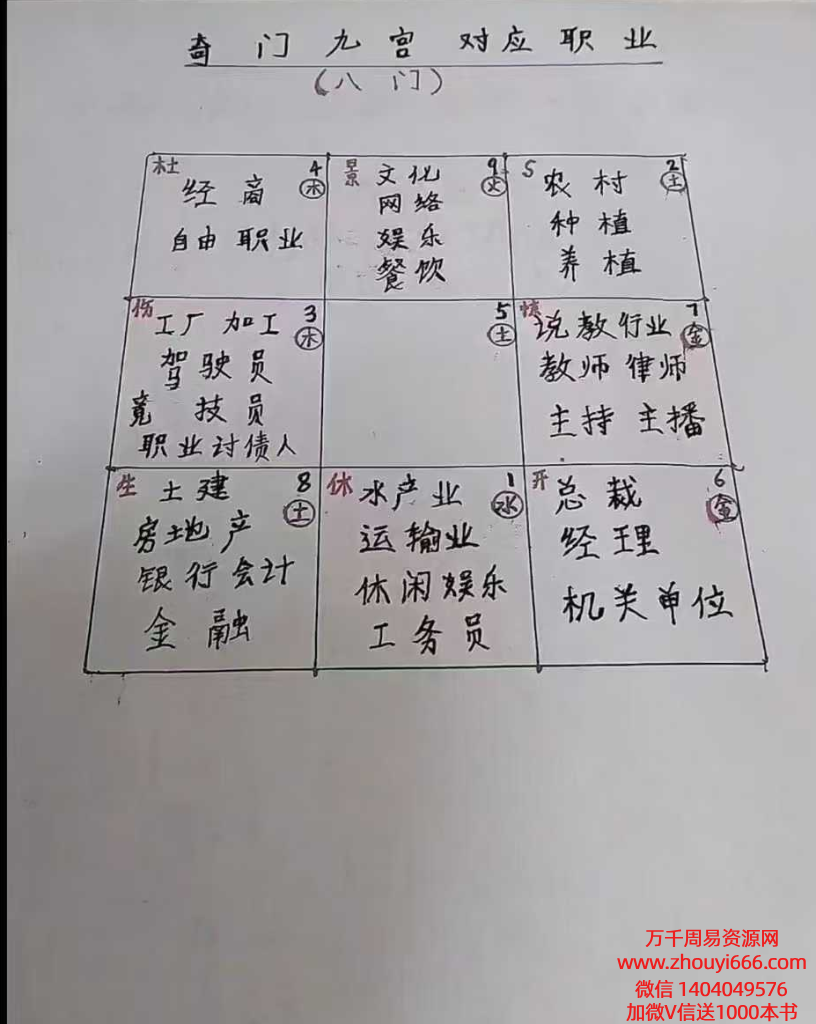 奇门九宫对应职业
(八门)
杜 4
经商 木
自由职业
景 9
文化 火
网络
娱乐
餐饮
5 2
农村 土
种植
养植
伤 3
工厂加工 木
驾驶员
竟技员
职业讨债人
5
土
惊 7
说教行业 金
教师律师
主持主播
生 8
土建 土
房地产
银行会计
金融
休 1
水产业 水
运输业
休闲娱乐
工务员
开 6
总裁 金
经理
机关单位
万千周易资源网
www.zhouyi666.com
微信 1404049576
加微V信送1000本书